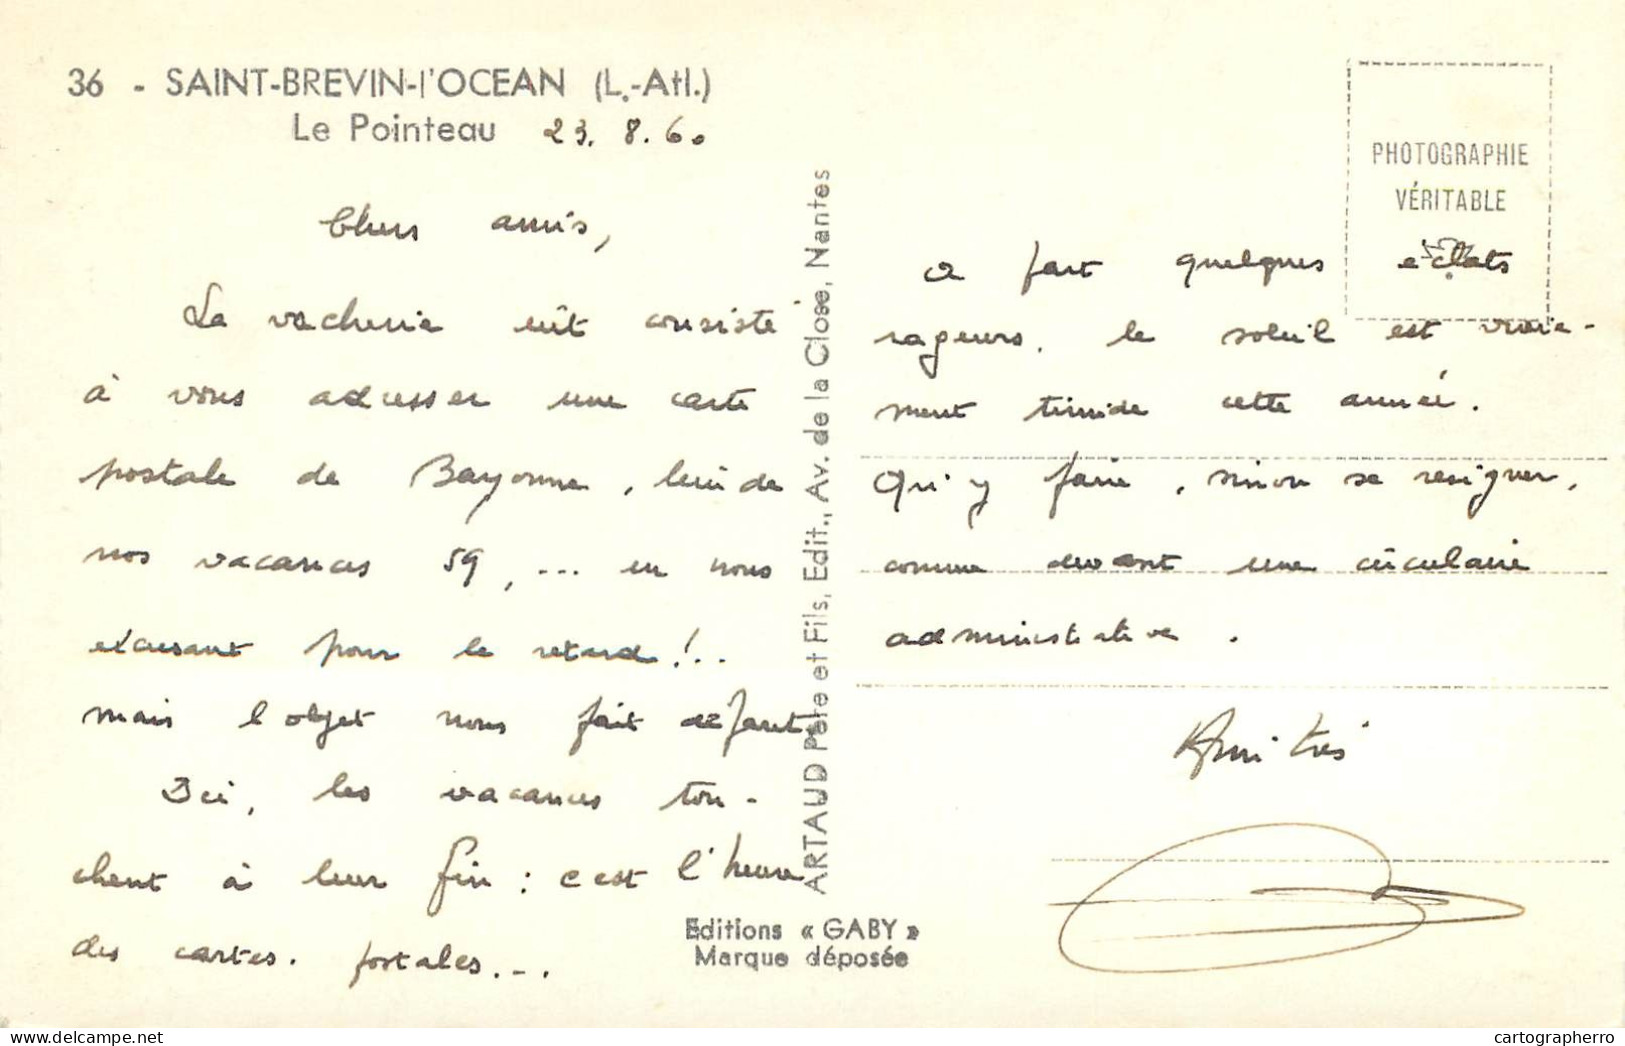 36 - SAINT-BREVIN-l'OCEAN (L.-Atl.)
Le Pointeau 23. 8. 60
Chers amis,
La vacherie eût consisté
à vous adresser une carte
postale de Bayonne, lieu de
nos vacances 59, ... en nous
excusant pour le retard !..
mais l'objet nous fait défaut.
Ici, les vacances tou-
chent à leur fin : c'est l'heure
des cartes. postales...
ARTAUD Père et Fils, Edit., Av. de la Close, Nantes
Editions « GABY »
Marque déposée
PHOTOGRAPHIE
VÉRITABLE
a part quelques éclats
rageurs. le soleil est vraie-
ment timide cette année.
Qu'y faire, sinon se resigner,
comme devant une circulaire
administrative.
Amitiés
cartographerro